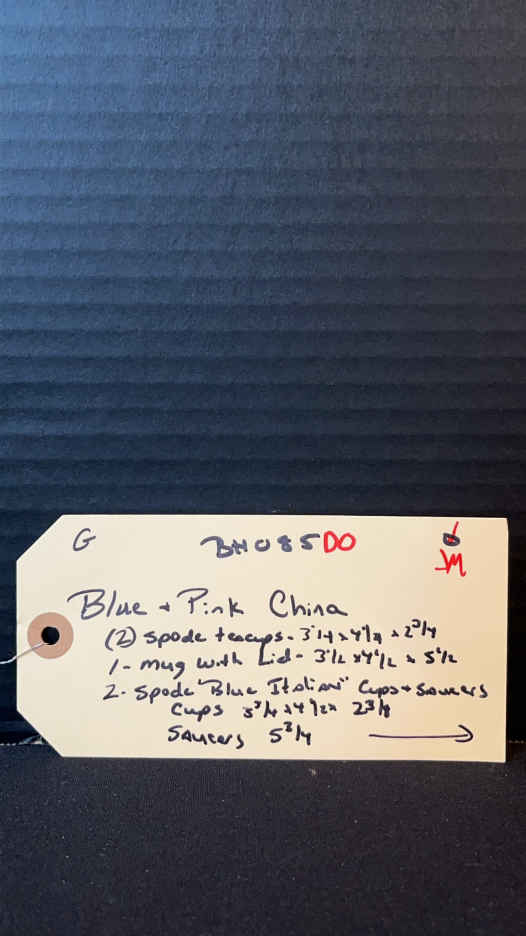 G BH085DO
JM
Blue + Pink China
(2) Spode teacups - 3 1/4 x 4 1/4 x 2 3/4
1 - mug with Lid - 3 1/2 x 4 1/2 x 5 1/2
2 - Spode "Blue Italian" Cups + Saucers
Cups 3 3/4 x 4 1/2 x 2 3/8
Saucers 5 3/4